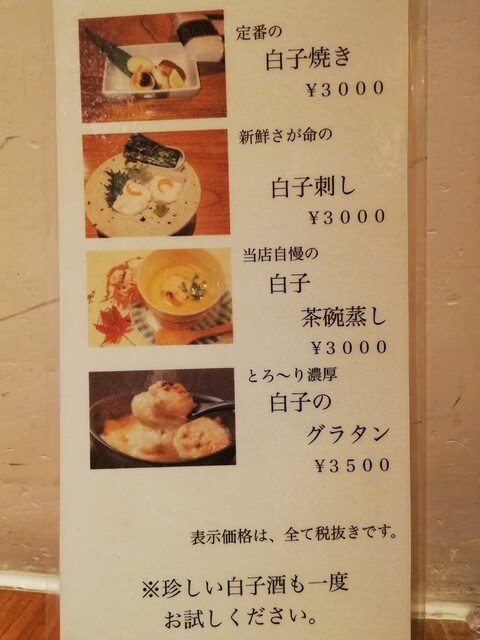 定番の
白子焼き
¥3000
新鮮さが命の
白子刺し
¥3000
当店自慢の
白子
茶碗蒸し
¥3000
とろ〜り濃厚
白子の
グラタン
¥3500
表示価格は、全て税抜きです。
※珍しい白子酒も一度
お試しください。